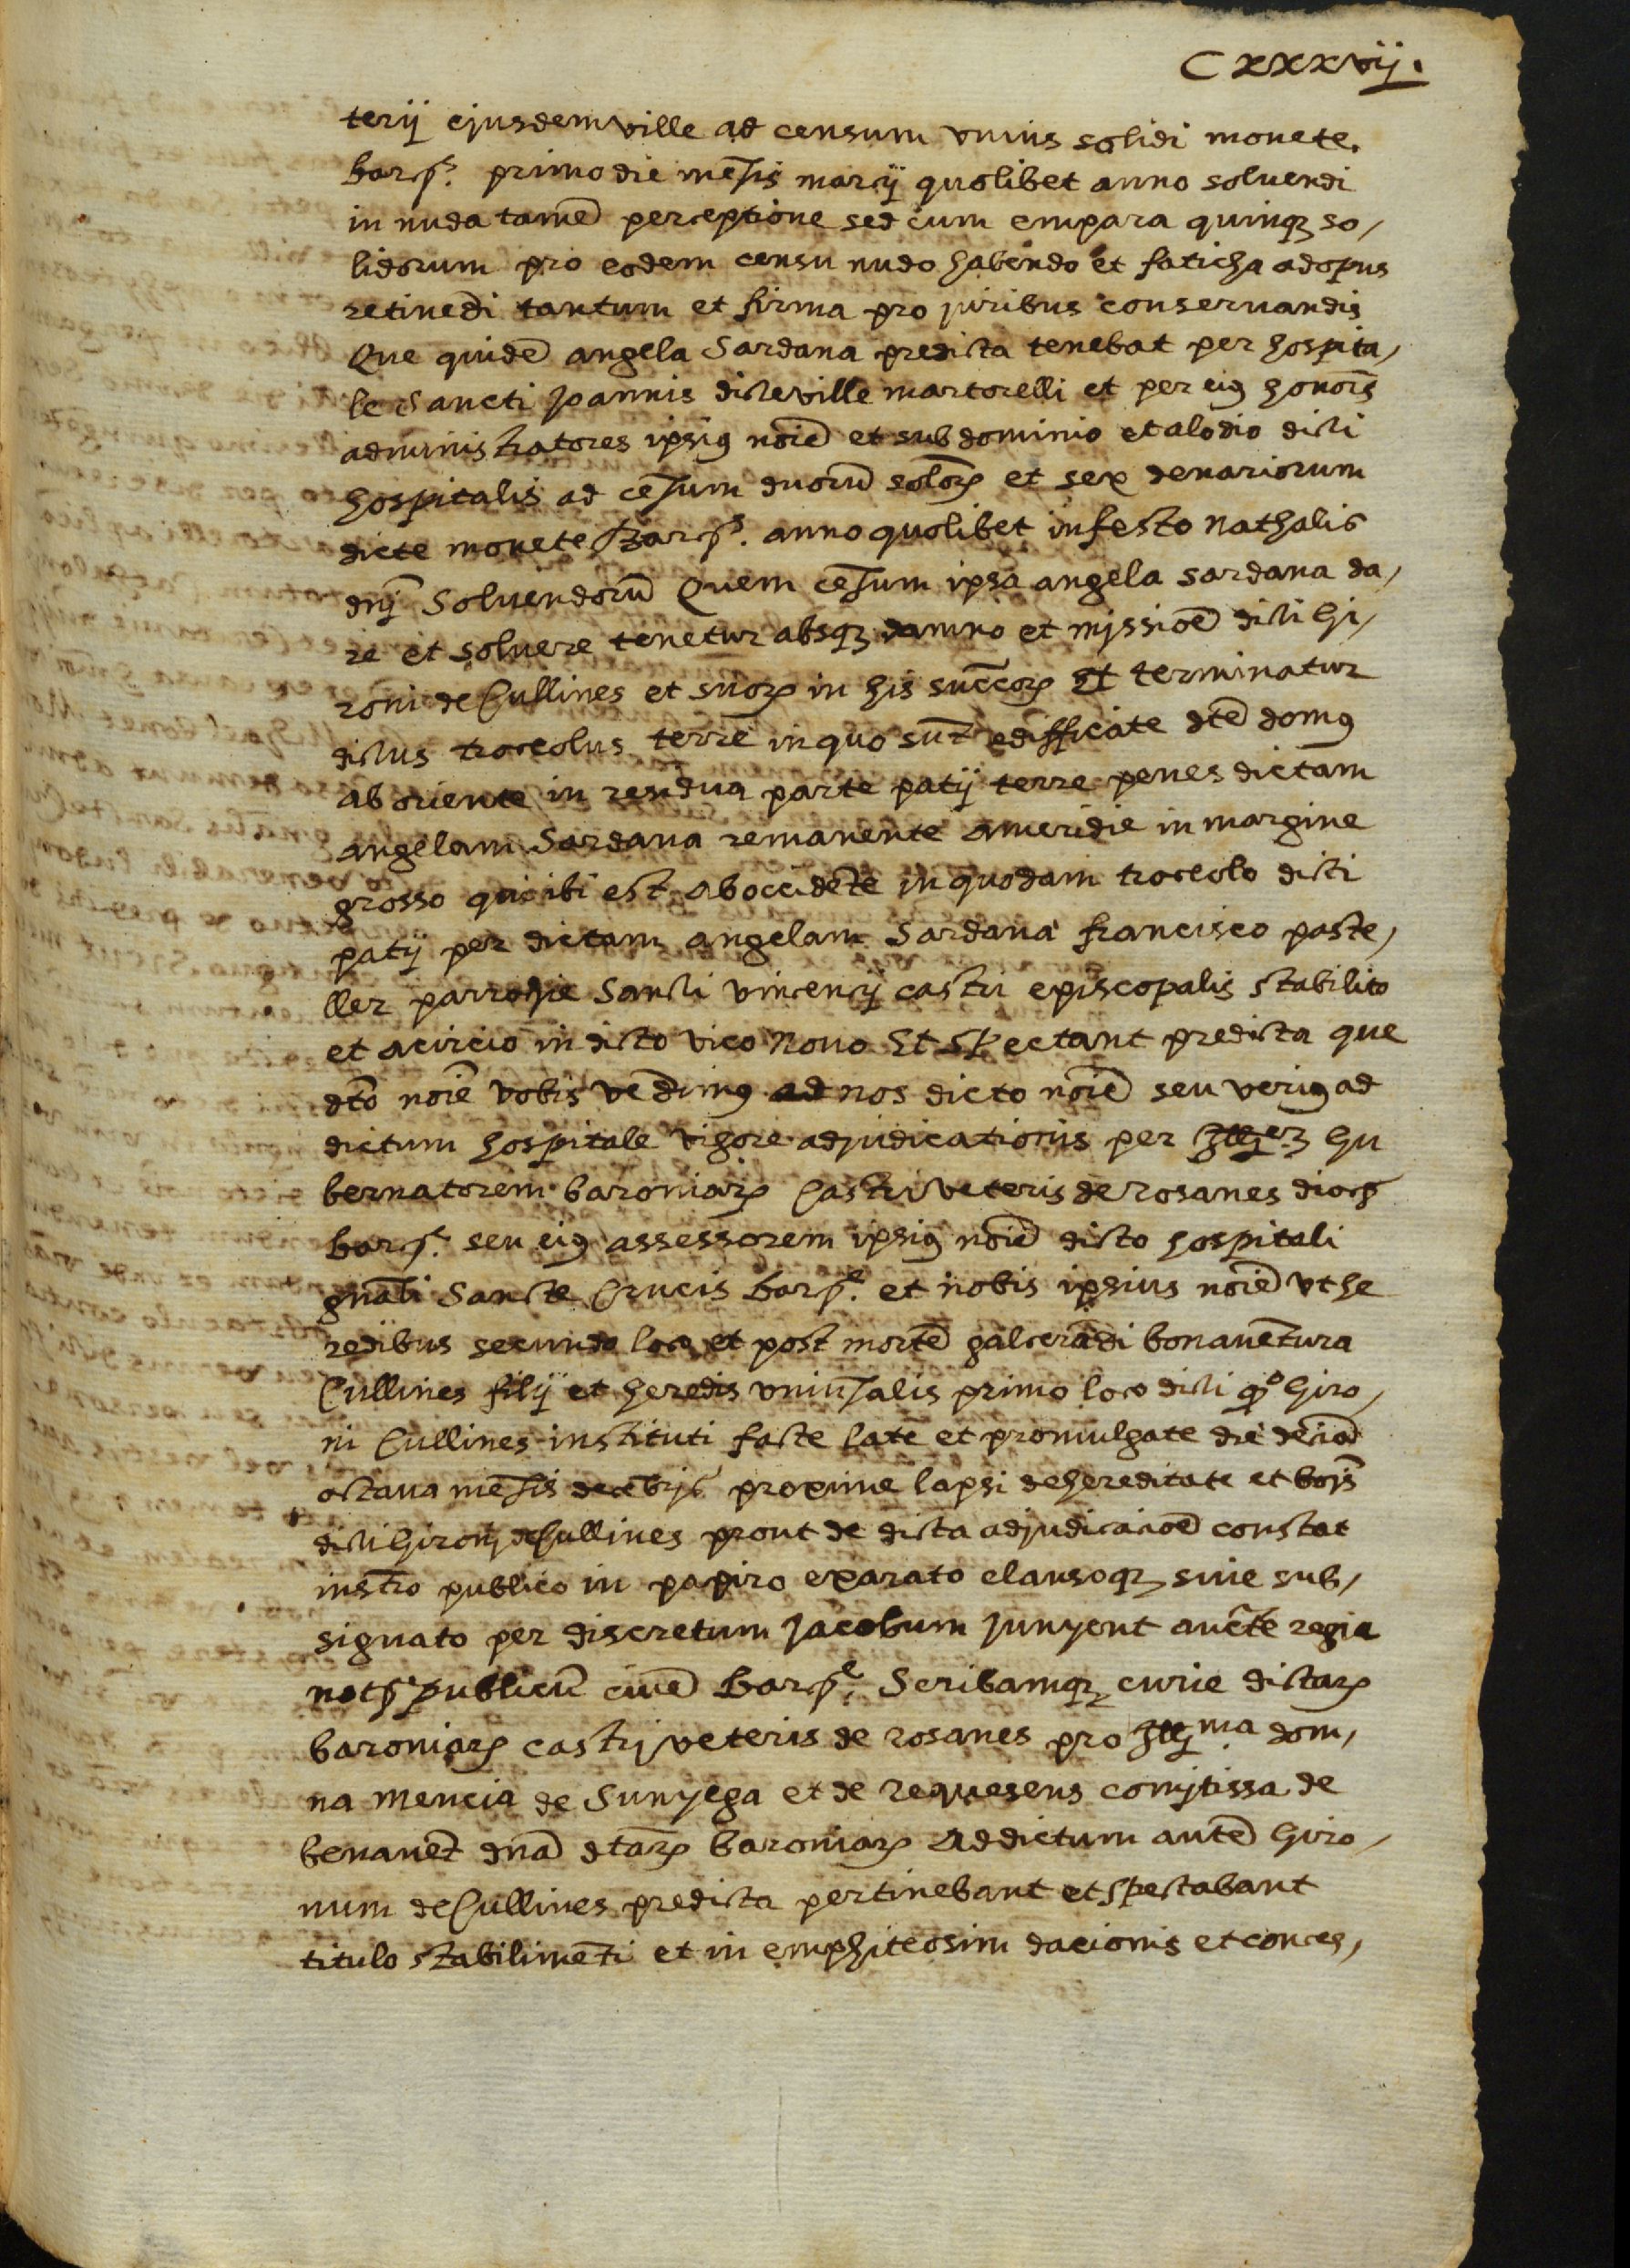 CXXXvij.
terij ejusdem ville ad censum vnius solidi monete
barỹ. primo die mēsis marcij quolibet anno soluendi
in nuda tamē perceptione sed cum empara quinqȝ so,
lidorum pro eodem censu nudo habendo et faticha ad opus
retinēdi tantum et firma pro juribus conseruandis
Que quidē angela Sardana predicta tenebat per hospita,
le Sancti Joannis dicte ville martorelli et per eiꝰ honorēs
administratores ipsiꝰ noīe et sub dominio et alodio dicti
hospitalis ad cēsum duorū solorꝝ et sex denariorum
dicte monete barỹ. anno quolibet in festo Nathalis
dnj̄ Soluendorū Quem cēsum ipsa angela sardana da,
re et soluere tenetur absqȝ damno et missioē dicti Gi,
roni de Cullines et suorꝝ in his succorꝝ Et terminatur
dictus troceolus terre in quo sūt edifficate dtē domꝰ
ab oriente in residua parte patij terre penes dictam
angelam Sardana remanente a meridie in margine
grosso qui ibi est ab occidēte in quodam troceolo dicti
patij per dictam angelam Sardana francisco paste,
ller parrochie Sancti vincencij castri episcopalis stabilito
et a circio in dicto vico Nouo Et Spectant predicta que
dtō noīe vobis vēdimꝰ ad nos dicto noīe seu veriꝰ ad
dictum hospitale vigore adjudicationis per Illj.er Gu
bernatorem baroniarꝝ Castri veteris de rosanes dioc̄
barỹ. seu eiꝰ assessorem ipsiꝰ noīe dicto hospitali
gnāli Sancte Crucis barỹ. et nobis ipsius noīe vt he
redibus secundo loco et post mortē galcerādi bonauētura
Cullines filij et heredis vniuersalis primo loco dicti qo Giro,
ni Cullines instituti facte late et promulgate die decīa
octaua mēsis decēbris proxime lapsi de hereditate et bojs̄
dicti Gironj de Cullines prout de dicta adjudicacioē constat
instrō publico in papiro exarato clausoqȝ siue sub,
signato per discretum Jacobum Junyent aucte regia
notꝝ publicū ciuē barỹ. Scribamqȝ curie dictarꝝ
baroniarꝝ castri veteris de rosanes pro Illj.ma dom,
na mencia de Sunyega et de requesens comitissa de
benauēt dnā dtārꝝ baroniarꝝ Ad dictum autē Giro,
num de Cullines predicta pertinebant et spectabant
titulo stabilimēti et in emphiteosim dacionis et conces,